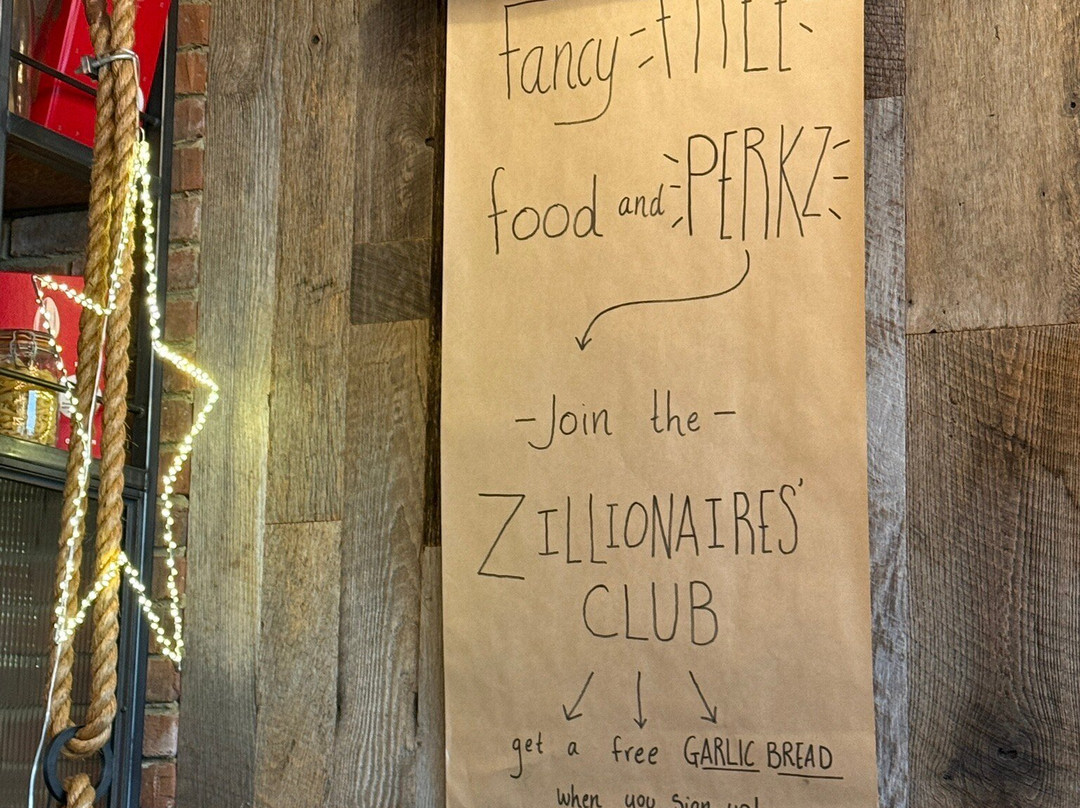 Fancy FREE
food and PERKZ
-Join the-
ZILLIONAIRES'
CLUB
get a free GARLIC BREAD
when you sign up!